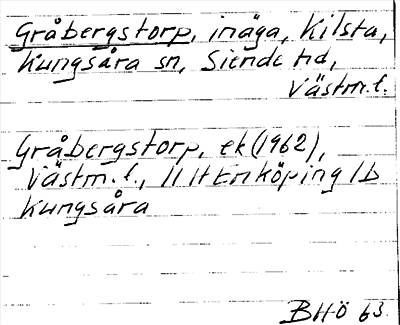 Gråbergstorp, inäga, Kilsta,
Kungsåra sn, Siende hd,
Västm.l.
Gråbergstorp, ek (1962),
Västm.l., 11 H Enköping 1b
Kungsåra
BHÖ 63.